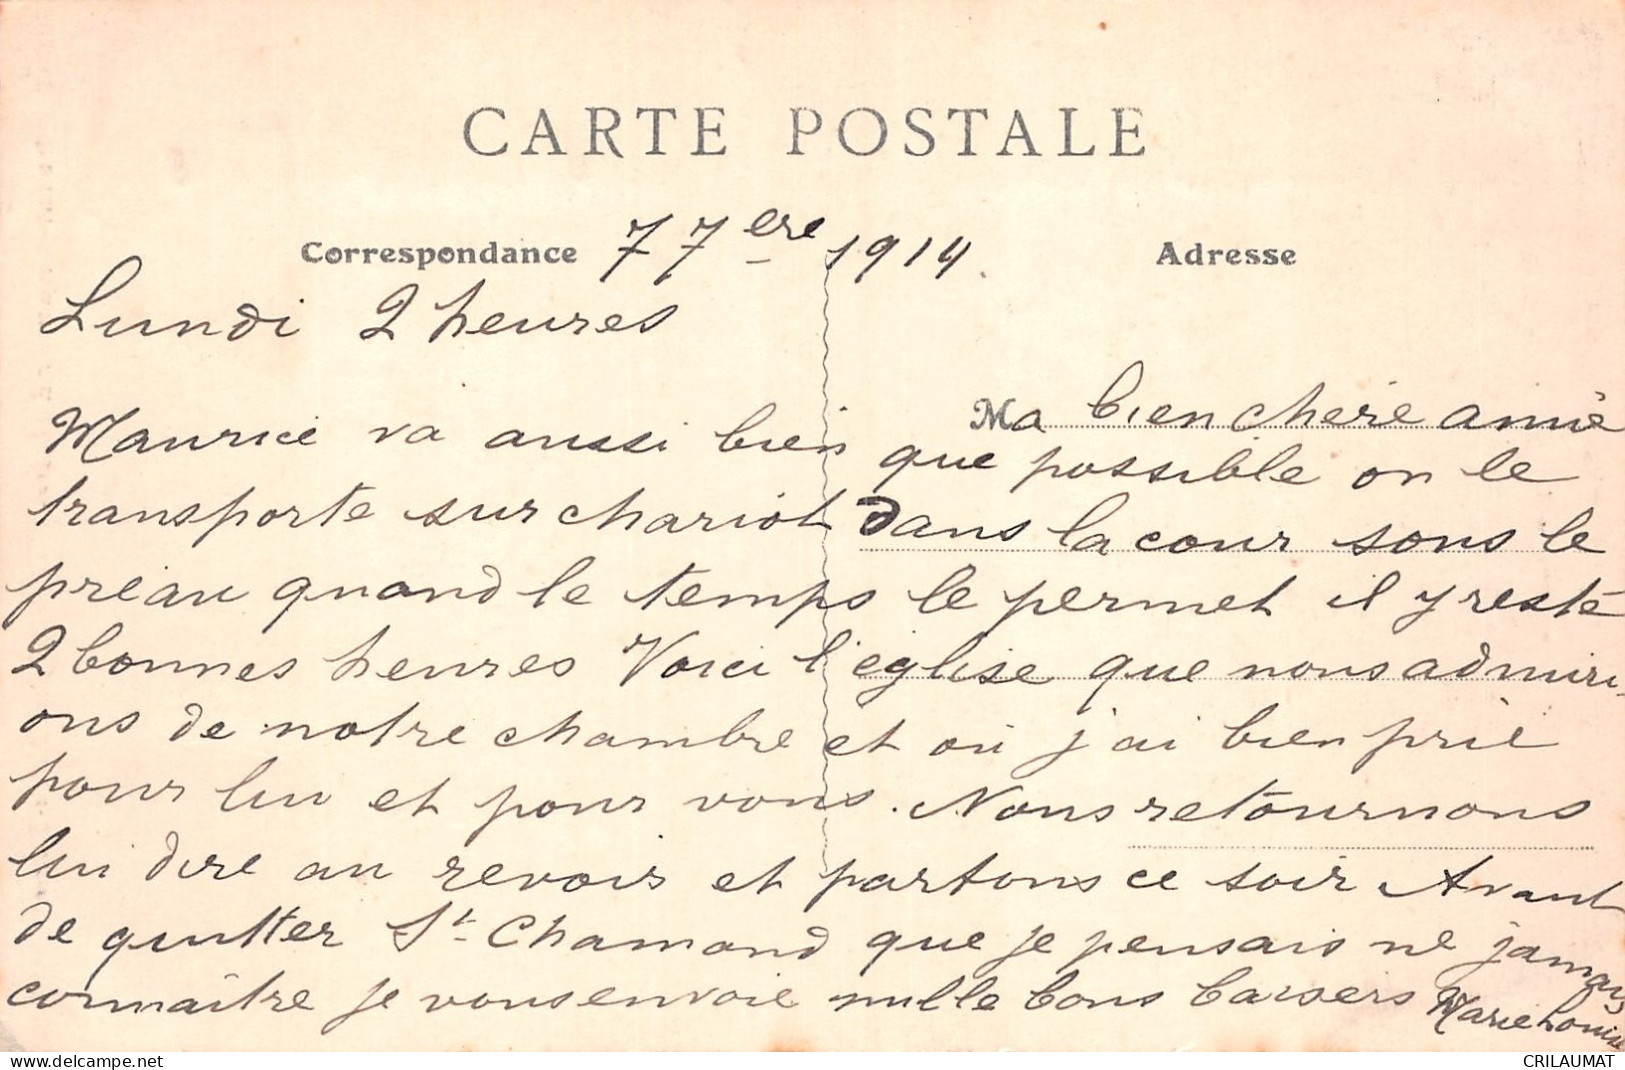 CARTE POSTALE
Correspondance 7 7ere 1914. Adresse
Lundi 2 heures
Ma bien chère amie
Maurice va aussi bien que possible on le
transporte sur chariot dans la cour sous le
préau quand le temps le permet il y reste
2 bonnes heures Voici l'église que nous admiri-
ons de notre chambre et où j'ai bien prié
pour lui et pour vous. Nous retournons
lui dire au revoir et partons ce soir Avant
de quitter St Chamond que je pensais ne jamais
connaître je vous envoie mille bons baisers
Marie Louise
www.delcampe.net CRILAUMAT